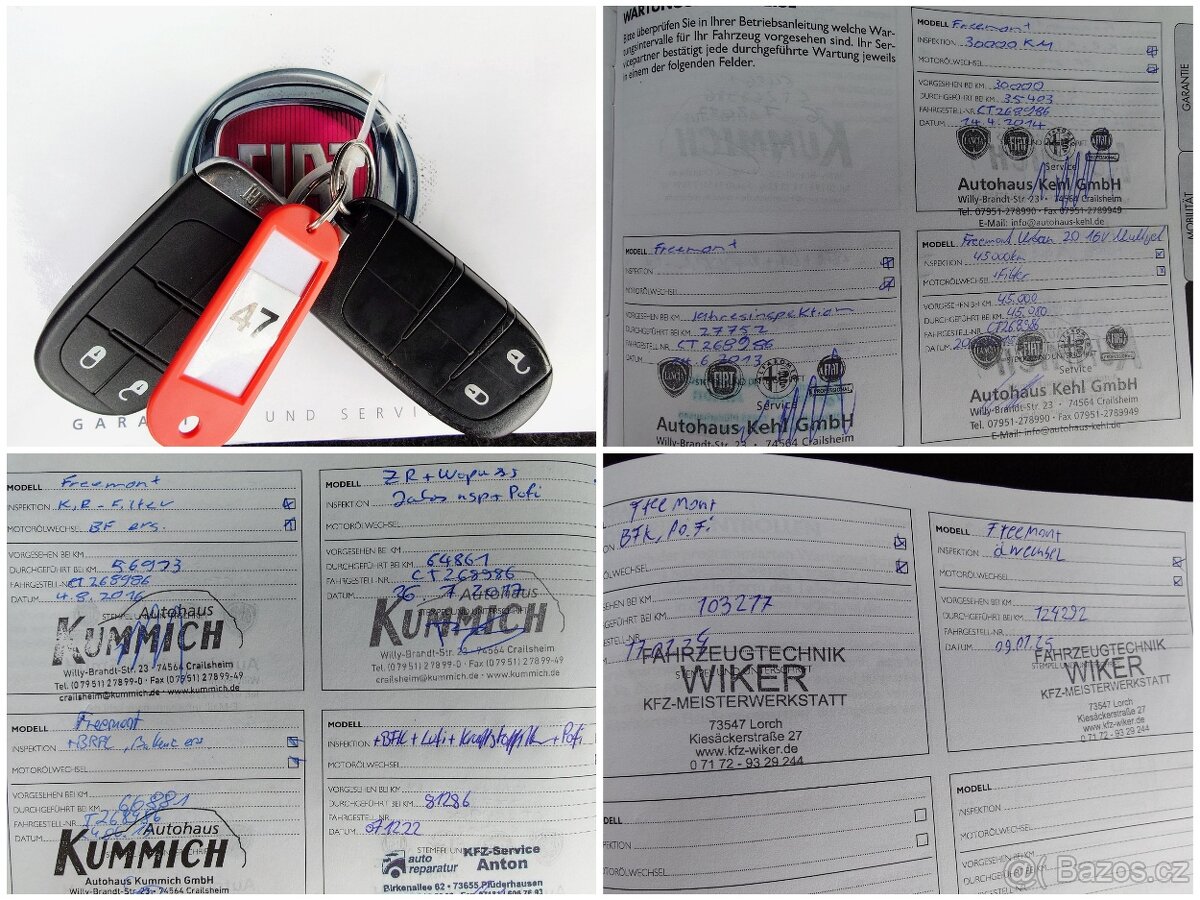 FIAT
47
GARA
UND SERVI
WARTUNGS
Bitte überprüfen Sie in Ihrer Betriebsanleitung welche War-
tungsintervalle für Ihr Fahrzeug vorgesehen sind. Ihr Ser-
vicepartner bestätigt jede durchgeführte Wartung jeweils
in einem der folgenden Felder.
MODELL Freemont
INSPEKTION 30000 KM
MOTORÖLWECHSEL
VORGESEHEN BEI KM 30000
DURCHGEFÜHRT BEI KM 35403
FAHRGESTELL-NR. CT268986
DATUM 14.4.2014
Service
Autohaus Kehl GmbH
Willy-Brandt-Str. 23 · 74564 Crailsheim
Tel. 07951-278990 · Fax 07951-2789949
E-Mail: info@autohaus-kehl.de
GARANTIE
MOBILITÄT
MODELL Freemont
INSPEKTION
MOTORÖLWECHSEL
VORGESEHEN BEI KM Jahresinspektion
DURCHGEFÜHRT BEI KM 27752
FAHRGESTELL-NR. CT268986
DATUM 6.2013
Service
Autohaus Kehl GmbH
Willy-Brandt-Str. 23 · 74564 Crailsheim
MODELL Freemont Urban 2.0 16V Multijet
INSPEKTION 45000km
MOTORÖLWECHSEL +Filter
VORGESEHEN BEI KM 45.000
DURCHGEFÜHRT BEI KM 45.080
FAHRGESTELL-NR. CT268986
DATUM
Service
Autohaus Kehl GmbH
Willy-Brandt-Str. 23 · 74564 Crailsheim
Tel. 07951-278990 · Fax 07951-2789949
E-Mail: info@autohaus-kehl.de
MODELL Freemont
INSPEKTION K.R-Filter
MOTORÖLWECHSEL BF ers.
VORGESEHEN BEI KM
DURCHGEFÜHRT BEI KM 56973
FAHRGESTELL-NR. CT268986
DATUM 4.8.2016
Autohaus
KUMMICH
Willy-Brandt-Str. 23 · 74564 Crailsheim
Tel. (07951) 27899-0 · Fax (07951) 27899-49
crailsheim@kummich.de · www.kummich.de
MODELL ZR+Wapu
INSPEKTION
MOTORÖLWECHSEL
VORGESEHEN BEI KM
DURCHGEFÜHRT BEI KM 64861
FAHRGESTELL-NR. CT268986
DATUM 26 7 2017
Autohaus
KUMMICH
Willy-Brandt-Str. 23 · 74564 Crailsheim
Tel. (07951) 27899-0 · Fax (07951) 27899-49
crailsheim@kummich.de · www.kummich.de
MODELL Freemont
INSPEKTION
MOTORÖLWECHSEL
VORGESEHEN BEI KM
DURCHGEFÜHRT BEI KM 66881
FAHRGESTELL-NR. CT268986
DATUM
Autohaus
KUMMICH
Autohaus Kummich GmbH
Willy-Brandt-Str. 23 · 74564 Crailsheim
MODELL
INSPEKTION +BFK+Lufi+Kraftstofffilter+Pofi
MOTORÖLWECHSEL
VORGESEHEN BEI KM
DURCHGEFÜHRT BEI KM 81286
FAHRGESTELL-NR.
DATUM 071222
auto reparatur
KFZ-Service
Anton
Birkenallee 62 · 73655 Plüderhausen
Freemont
BFK, Po.Fi
ÖLWECHSEL
103277
17.07.24
FAHRZEUGTECHNIK
WIKER
KFZ-MEISTERWERKSTATT
73547 Lorch
Kiesäckerstraße 27
www.kfz-wiker.de
0 71 72 - 93 29 244
MODELL Freemont
INSPEKTION ölwechsel
MOTORÖLWECHSEL
VORGESEHEN BEI KM
DURCHGEFÜHRT BEI KM 124292
FAHRGESTELL-NR.
DATUM 09.07.25
FAHRZEUGTECHNIK
WIKER
KFZ-MEISTERWERKSTATT
73547 Lorch
Kiesäckerstraße 27
www.kfz-wiker.de
0 71 72 - 93 29 244
MODELL
INSPEKTION
MOTORÖLWECHSEL
VORGESEHEN BEI KM
DURCHGEFÜHRT BEI KM
FAHRGESTELL-NR.
Bazos.cz